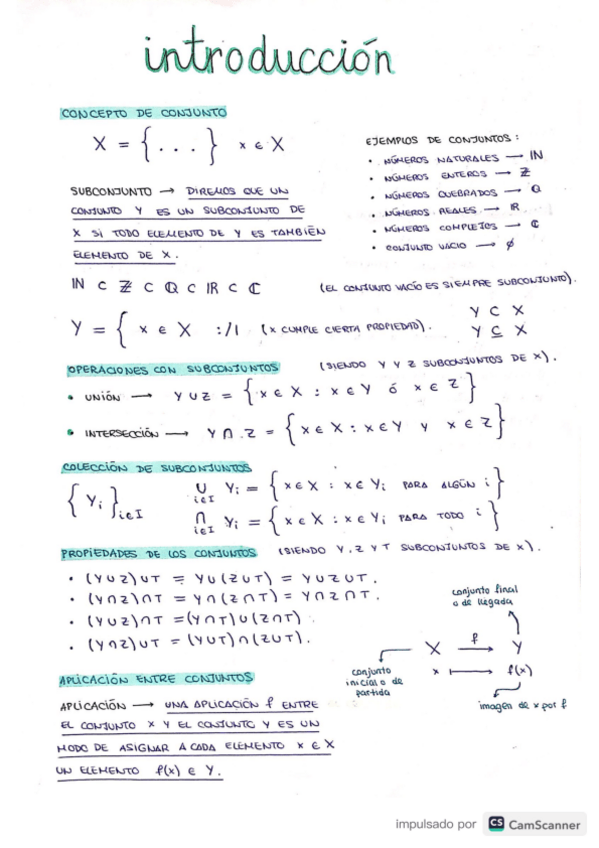 introducción
CONCEPTO DE CONJUNTO
X = { . . . } x ∈ X
SUBCONJUNTO → DIREMOS QUE UN
CONJUNTO Y ES UN SUBCONJUNTO DE
X SI TODO ELEMENTO DE Y ES TAMBIÉN
ELEMENTO DE X.
EJEMPLOS DE CONJUNTOS :
• NÚMEROS NATURALES → ℕ
• NÚMEROS ENTEROS → ℤ
• NÚMEROS QUEBRADOS → ℚ
• NÚMEROS REALES → ℝ
• NÚMEROS COMPLEJOS → ℂ
• CONJUNTO VACÍO → ∅
ℕ ⊂ ℤ ⊂ ℚ ⊂ ℝ ⊂ ℂ (EL CONJUNTO VACÍO ES SIEMPRE SUBCONJUNTO).
Y = { x ∈ X :/| (x CUMPLE CIERTA PROPIEDAD).
Y ⊂ X
Y ⊆ X
OPERACIONES CON SUBCONJUNTOS (SIENDO Y Y Z SUBCONJUNTOS DE X).
• UNIÓN → Y ∪ Z = { x ∈ X : x ∈ Y ó x ∈ Z }
• INTERSECCIÓN → Y ∩ Z = { x ∈ X : x ∈ Y y x ∈ Z }
COLECCIÓN DE SUBCONJUNTOS
{ Yi } i∈I
∪ i∈I Yi = { x ∈ X : x ∈ Yi PARA ALGÚN i }
∩ i∈I Yi = { x ∈ X : x ∈ Yi PARA TODO i }
PROPIEDADES DE LOS CONJUNTOS (SIENDO Y, Z Y T SUBCONJUNTOS DE X).
• (Y∪Z)∪T = Y∪(Z∪T) = Y∪Z∪T.
• (Y∩Z)∩T = Y∩(Z∩T) = Y∩Z∩T.
• (Y∪Z)∩T = (Y∩T)∪(Z∩T).
• (Y∩Z)∪T = (Y∪T)∩(Z∪T).
conjunto final
o de llegada
X f → Y
x ↦ f(x)
conjunto
inicial o de
partida
imagen de x por f
APLICACIÓN ENTRE CONJUNTOS
APLICACIÓN → UNA APLICACIÓN f ENTRE
EL CONJUNTO X Y EL CONJUNTO Y ES UN
MODO DE ASIGNAR A CADA ELEMENTO x ∈ X
UN ELEMENTO f(x) ∈ Y.
impulsado por CS CamScanner